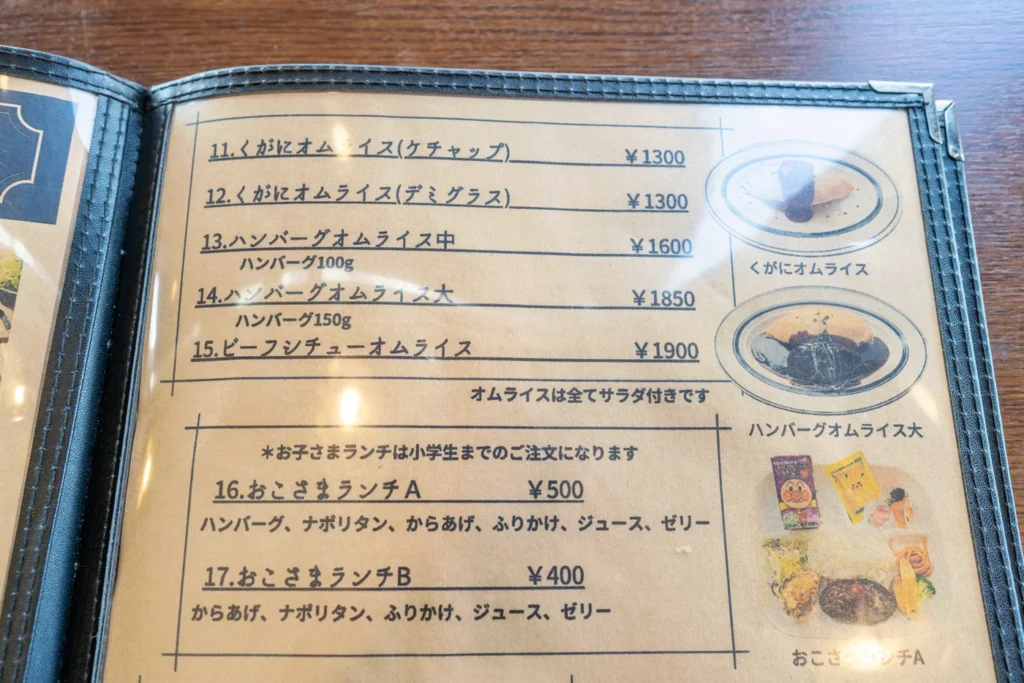 11.くがにオムライス(ケチャップ) ¥1300
12.くがにオムライス(デミグラス) ¥1300
13.ハンバーグオムライス中 ¥1600
ハンバーグ100g
14.ハンバーグオムライス大 ¥1850
ハンバーグ150g
15.ビーフシチューオムライス ¥1900
オムライスは全てサラダ付きです
くがにオムライス
ハンバーグオムライス大
*お子さまランチは小学生までのご注文になります
16.おこさまランチA ¥500
ハンバーグ、ナポリタン、からあげ、ふりかけ、ジュース、ゼリー
17.おこさまランチB ¥400
からあげ、ナポリタン、ふりかけ、ジュース、ゼリー
おこさまランチA